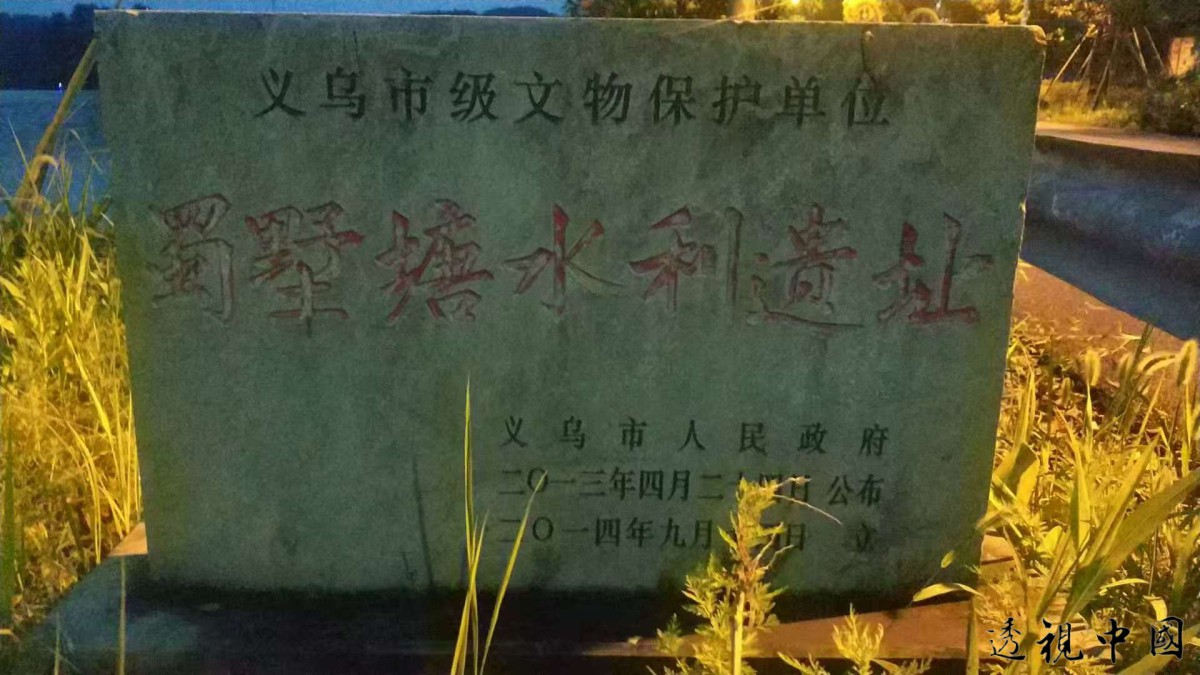 义乌市级文物保护单位
蜀墅塘水利遗址
义乌市人民政府
二〇一三年四月二十四日 公布
二〇一四年九月 日 立
透視中國